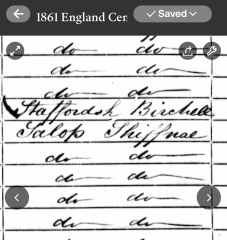 1861 England Cen
Saved
do do
do do
do do
Staffordsh Birchell
Salop Shiffnal
do do
do do
do do
do do